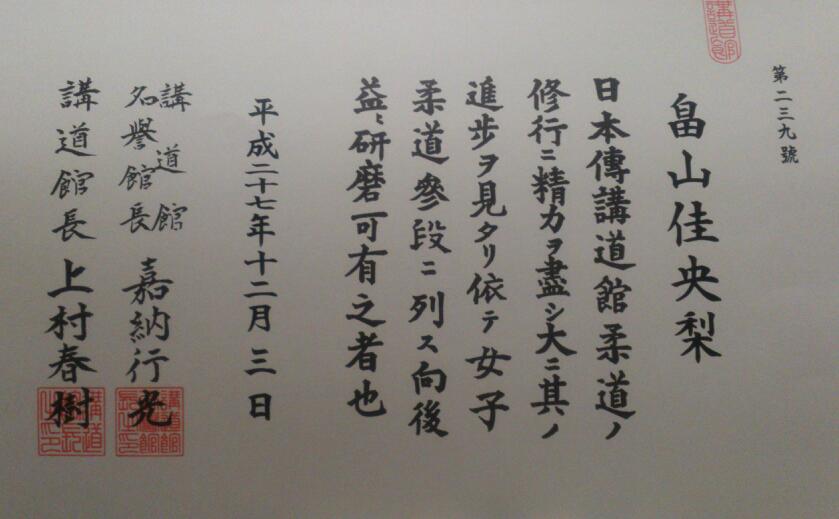 第二三九號
畠山佳央梨
日本傳講道館柔道ノ
修行ニ精力ヲ盡シ大ニ其ノ
進歩ヲ見タリ依テ女子
柔道參段ニ列ス向後
益〻研磨可有之者也
平成二十七年十二月三日
講道館
名譽館長 嘉納行光
講道館長 上村春樹
講道館